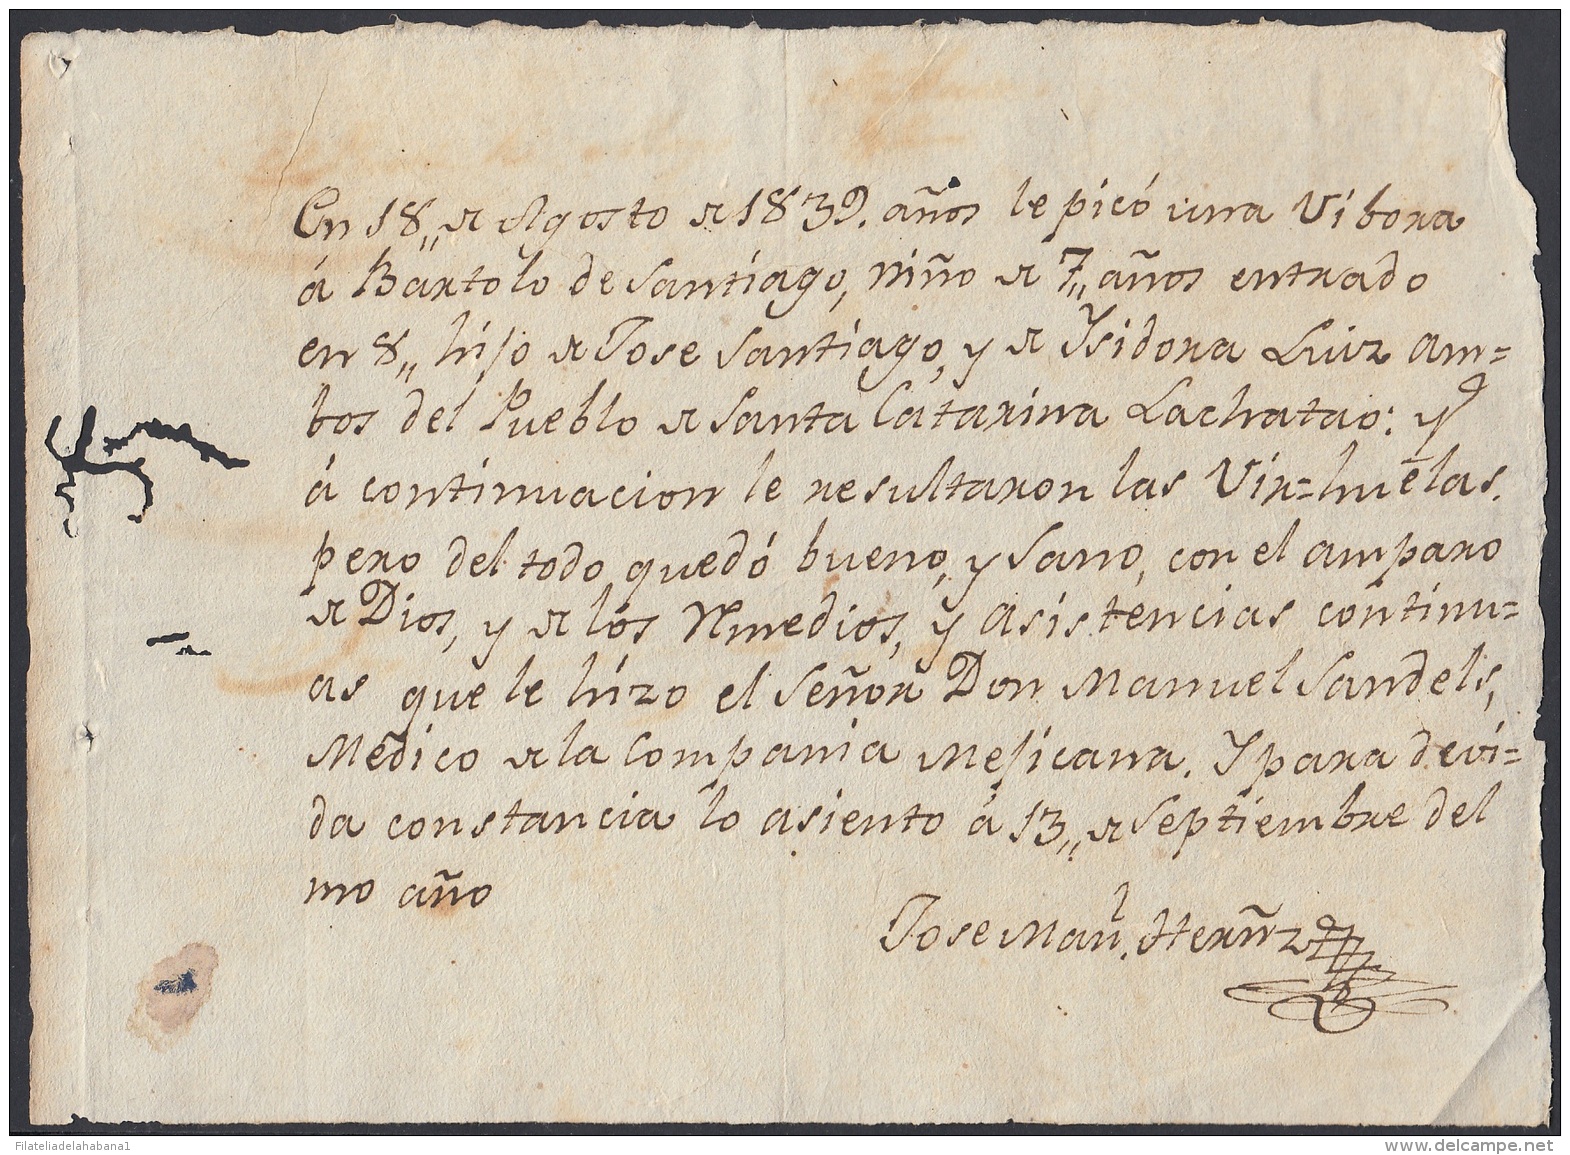 En 18,, de Agosto de 1839. años le picó una Vibora
á Bartolo de Santiago, niño de 7,, años entrado
en 8,, hijo de Jose Santiago, y de Ysidora Luiz am=
bos del Pueblo de Santa Catarina Lachatao: y
á continuacion le resultaron las Vir=huelas.
pero del todo quedó bueno, y Sano, con el amparo
de Dios, y de los Rmedios, y asistencias continu=
as que le hizo el Señor Don Manuel Sandels,
Medico de la Compania Mejicana. Y para devi=
da constancia lo asiento á 13,, de Septiembre del
mo año
Jose Man.l Herñz
Filateliadelahabana1
www.delcampe.net